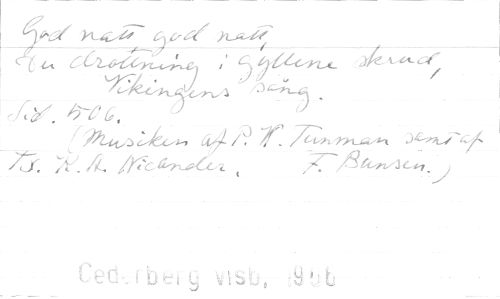 God natt god natt,
Du drottning i gyllene skrud,
Vikingens sång.
Sid. 506.
(Musiken af P. W. Tunman samt af
Ts. K. A. Nicander. F. Bunsen.)
Cederberg visb, 1966